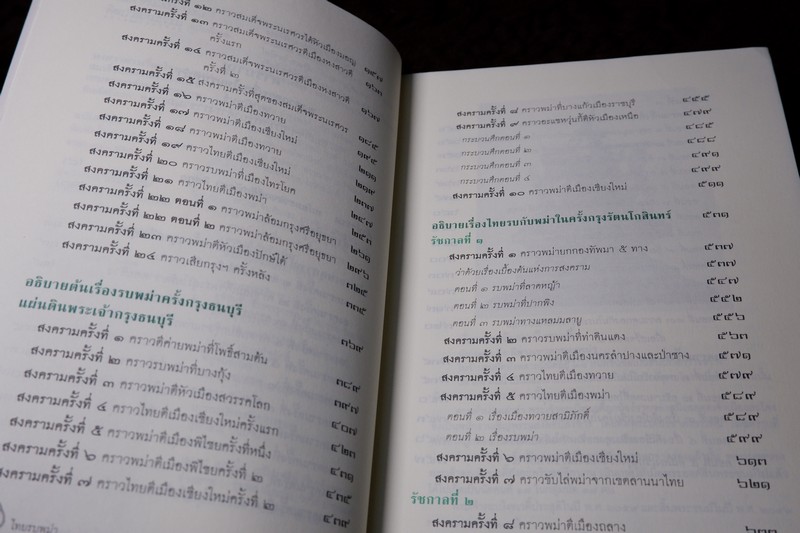 สงครามครั้งที่ ๑๒ คราวสมเด็จพระนเรศวรได้หัวเมืองมอญ
สงครามครั้งที่ ๑๓ คราวสมเด็จพระนเรศวรตีเมืองหงสาวดี
ครั้งแรก ๑๕๗
สงครามครั้งที่ ๑๔ คราวสมเด็จพระนเรศวรตีเมืองหงสาวดี
ครั้งที่ ๒
สงครามครั้งที่ ๑๕ สงครามครั้งที่สุดของสมเด็จพระนเรศวร
สงครามครั้งที่ ๑๖ คราวพม่าตีเมืองทวาย
สงครามครั้งที่ ๑๗ คราวพม่าตีเมืองเชียงใหม่ ๑๘๕
สงครามครั้งที่ ๑๘ คราวพม่าตีเมืองทวาย ๑๙๕
สงครามครั้งที่ ๑๙ คราวไทยตีเมืองเชียงใหม่
สงครามครั้งที่ ๒๐ คราวรบพม่าที่เมืองไทรโยค
สงครามครั้งที่ ๒๑ คราวไทยตีเมืองพม่า
สงครามครั้งที่ ๒๒ ตอนที่ ๑ คราวพม่าล้อมกรุงศรีอยุธยา
สงครามครั้งที่ ๒๒ ตอนที่ ๒ คราวพม่าล้อมกรุงศรีอยุธยา
สงครามครั้งที่ ๒๓ คราวพม่าตีหัวเมืองปักษ์ใต้
สงครามครั้งที่ ๒๔ คราวเสียกรุงฯ ครั้งหลัง
อธิบายต้นเรื่องรบพม่าครั้งกรุงธนบุรี
แผ่นดินพระเจ้ากรุงธนบุรี
สงครามครั้งที่ ๑ คราวตีค่ายพม่าที่โพธิ์สามต้น ๓๖๙
สงครามครั้งที่ ๒ คราวรบพม่าที่บางกุ้ง ๓๘๙
สงครามครั้งที่ ๓ คราวพม่าตีหัวเมืองสวรรคโลก ๓๙๗
สงครามครั้งที่ ๔ คราวไทยตีเมืองเชียงใหม่ครั้งแรก ๔๐๗
สงครามครั้งที่ ๕ คราวพม่าตีเมืองพิไชยครั้งที่หนึ่ง ๔๒๓
สงครามครั้งที่ ๖ คราวพม่าตีเมืองพิไชยครั้งที่ ๒ ๔๓๑
สงครามครั้งที่ ๗ คราวไทยตีเมืองเชียงใหม่ครั้งที่ ๒ ๔๓๕
๔๓๙
ไทยรบพม่า
สงครามครั้งที่ ๘ คราวพม่าที่บางแก้วเมืองราชบุรี ๔๕๕
สงครามครั้งที่ ๙ คราวอะแซหวุ่นกี้ตีหัวเมืองเหนือ ๔๗๙
กระบวนศึกตอนที่ ๑ ๔๘๕
กระบวนศึกตอนที่ ๒ ๔๘๘
กระบวนศึกตอนที่ ๓ ๔๙๑
กระบวนศึกตอนที่ ๔ ๔๙๙
สงครามครั้งที่ ๑๐ คราวพม่าตีเมืองเชียงใหม่ ๕๑๑
อธิบายเรื่องไทยรบกับพม่าในครั้งกรุงรัตนโกสินทร์ ๕๓๑
รัชกาลที่ ๑
สงครามครั้งที่ ๑ คราวพม่ายกกองทัพมา ๕ ทาง ๕๓๗
ว่าด้วยเรื่องเบื้องต้นแห่งการสงคราม ๕๓๗
ตอนที่ ๑ รบพม่าที่ลาดหญ้า ๕๔๗
ตอนที่ ๒ รบพม่าที่ปากพิง ๕๕๒
ตอนที่ ๓ รบพม่าทางแหลมมลายู ๕๕๖
สงครามครั้งที่ ๒ คราวรบพม่าที่ท่าดินแดง ๕๖๓
สงครามครั้งที่ ๓ คราวพม่าตีเมืองนครลำปางและป่าซาง ๕๗๑
สงครามครั้งที่ ๔ คราวไทยตีเมืองทวาย ๕๗๙
สงครามครั้งที่ ๕ คราวไทยตีเมืองพม่า ๕๘๙
ตอนที่ ๑ เรื่องเมืองทวายสามิภักดิ์ ๕๘๙
ตอนที่ ๒ เรื่องรบพม่า ๕๙๙
สงครามครั้งที่ ๖ คราวพม่าตีเมืองเชียงใหม่ ๖๑๓
สงครามครั้งที่ ๗ คราวขับไล่พม่าจากเขตลานนาไทย ๖๒๑
รัชกาลที่ ๒
สงครามครั้งที่ ๘ คราวพม่าตีเมืองถลาง